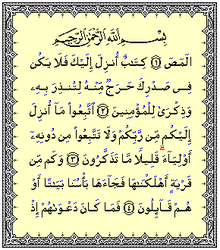 بِسْمِ اللَّهِ الرَّحْمَٰنِ الرَّحِيمِ
الٓمٓصٓ ﴿١﴾ كِتَٰبٌ أُنزِلَ إِلَيْكَ فَلَا يَكُن
فِى صَدْرِكَ حَرَجٌ مِّنْهُ لِتُنذِرَ بِهِۦ
وَذِكْرَىٰ لِلْمُؤْمِنِينَ ﴿٢﴾ ٱتَّبِعُوا۟ مَآ أُنزِلَ
إِلَيْكُم مِّن رَّبِّكُمْ وَلَا تَتَّبِعُوا۟ مِن دُونِهِۦٓ
أَوْلِيَآءَ ۗ قَلِيلًا مَّا تَذَكَّرُونَ ﴿٣﴾ وَكَم مِّن
قَرْيَةٍ أَهْلَكْنَٰهَا فَجَآءَهَا بَأْسُنَا بَيَٰتًا أَوْ
هُمْ قَآئِلُونَ ﴿٤﴾ فَمَا كَانَ دَعْوَىٰهُمْ إِذْ